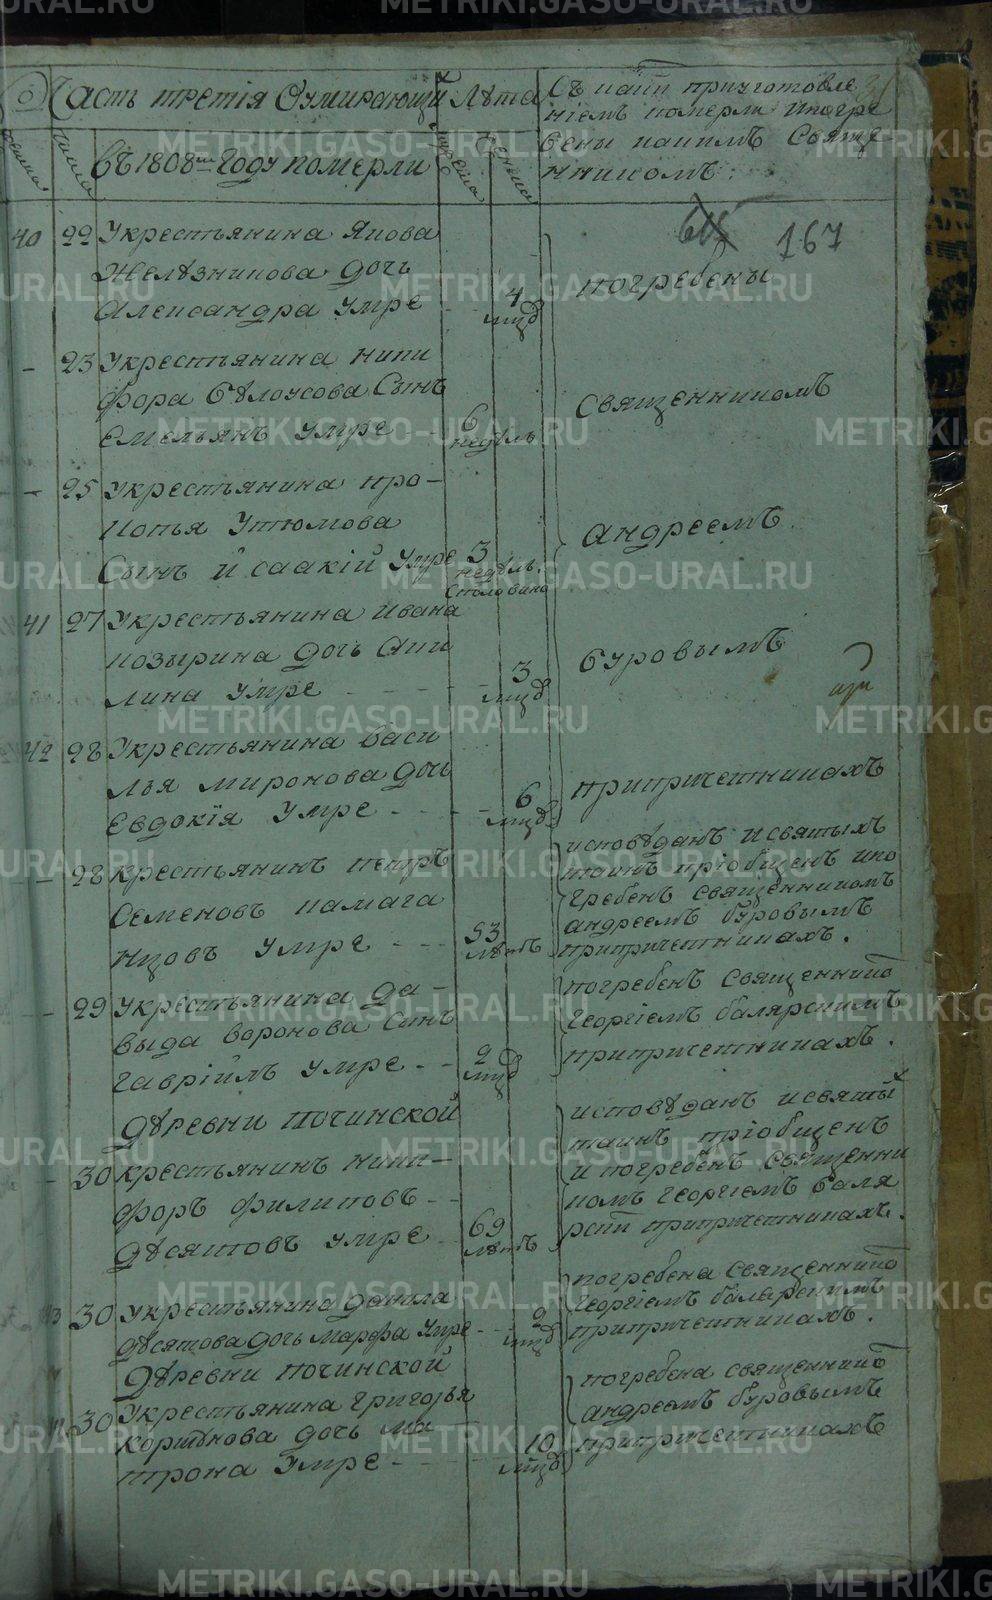 METRIKI.GASO-URAL.RU
Часть третія Оумирающихъ
Лѣта
Съ каки пріуготовле
ніемъ померли ипогре
бены икаимъ Священникомъ.
въ 1808мъ Году померли
167
40 22 Укрестьянина Якова
Желѣзникова дочь
Александра умре 4 мцъ
погребены
23 Укрестьянина ники
фора бѣлоусова Сынъ
Емельянъ умре 6 недѣль
священникомъ
25 Укрестьянина про-
копья Утюмова
Сынъ исаакій умре 3 недѣль споловино
андреемъ
41 27 Укрестьянина ивана
козырина дочь Аки
лина умре 3 мцъ
буровымъ
42 28 Укрестьянина васи
лья миронова дочь
Евдокія умре 6 мцъ
припричетникахъ
28 крестьянинъ петръ
Семеновъ камага
нцовъ умре 53 лѣтъ
исповѣданъ исвятыхъ
таинъ пріобщенъ ипо
гребенъ священникомъ
андреемъ буровымъ
припричетникахъ.
29 Укрестьянина да-
выда воронова Сынъ
гавріилъ умре 2 мцъ
погребенъ священнико
Георгіемъ балярскимъ
припричетникахъ.
Дѣревни починской
30 крестьянинъ ники-
форъ филиповъ
дѣсятовъ умре 69 лѣтъ
исповѣданъ исвяты
таинъ пріобщенъ
и погребенъ священни
комъ Георгіемъ баля
рски припричетникахъ.
43 30 Укрестьянина данила
дѣсятова дочь марфа умре 2 мцъ
погребена священнико
Георгіемъ балярскимъ
припричетникахъ.
Дѣревни починской
30 Укрестьянина григорья
дочь ма
трона умре 10 мцъ
погребена священнико
андреемъ буровымъ
припричетникахъ